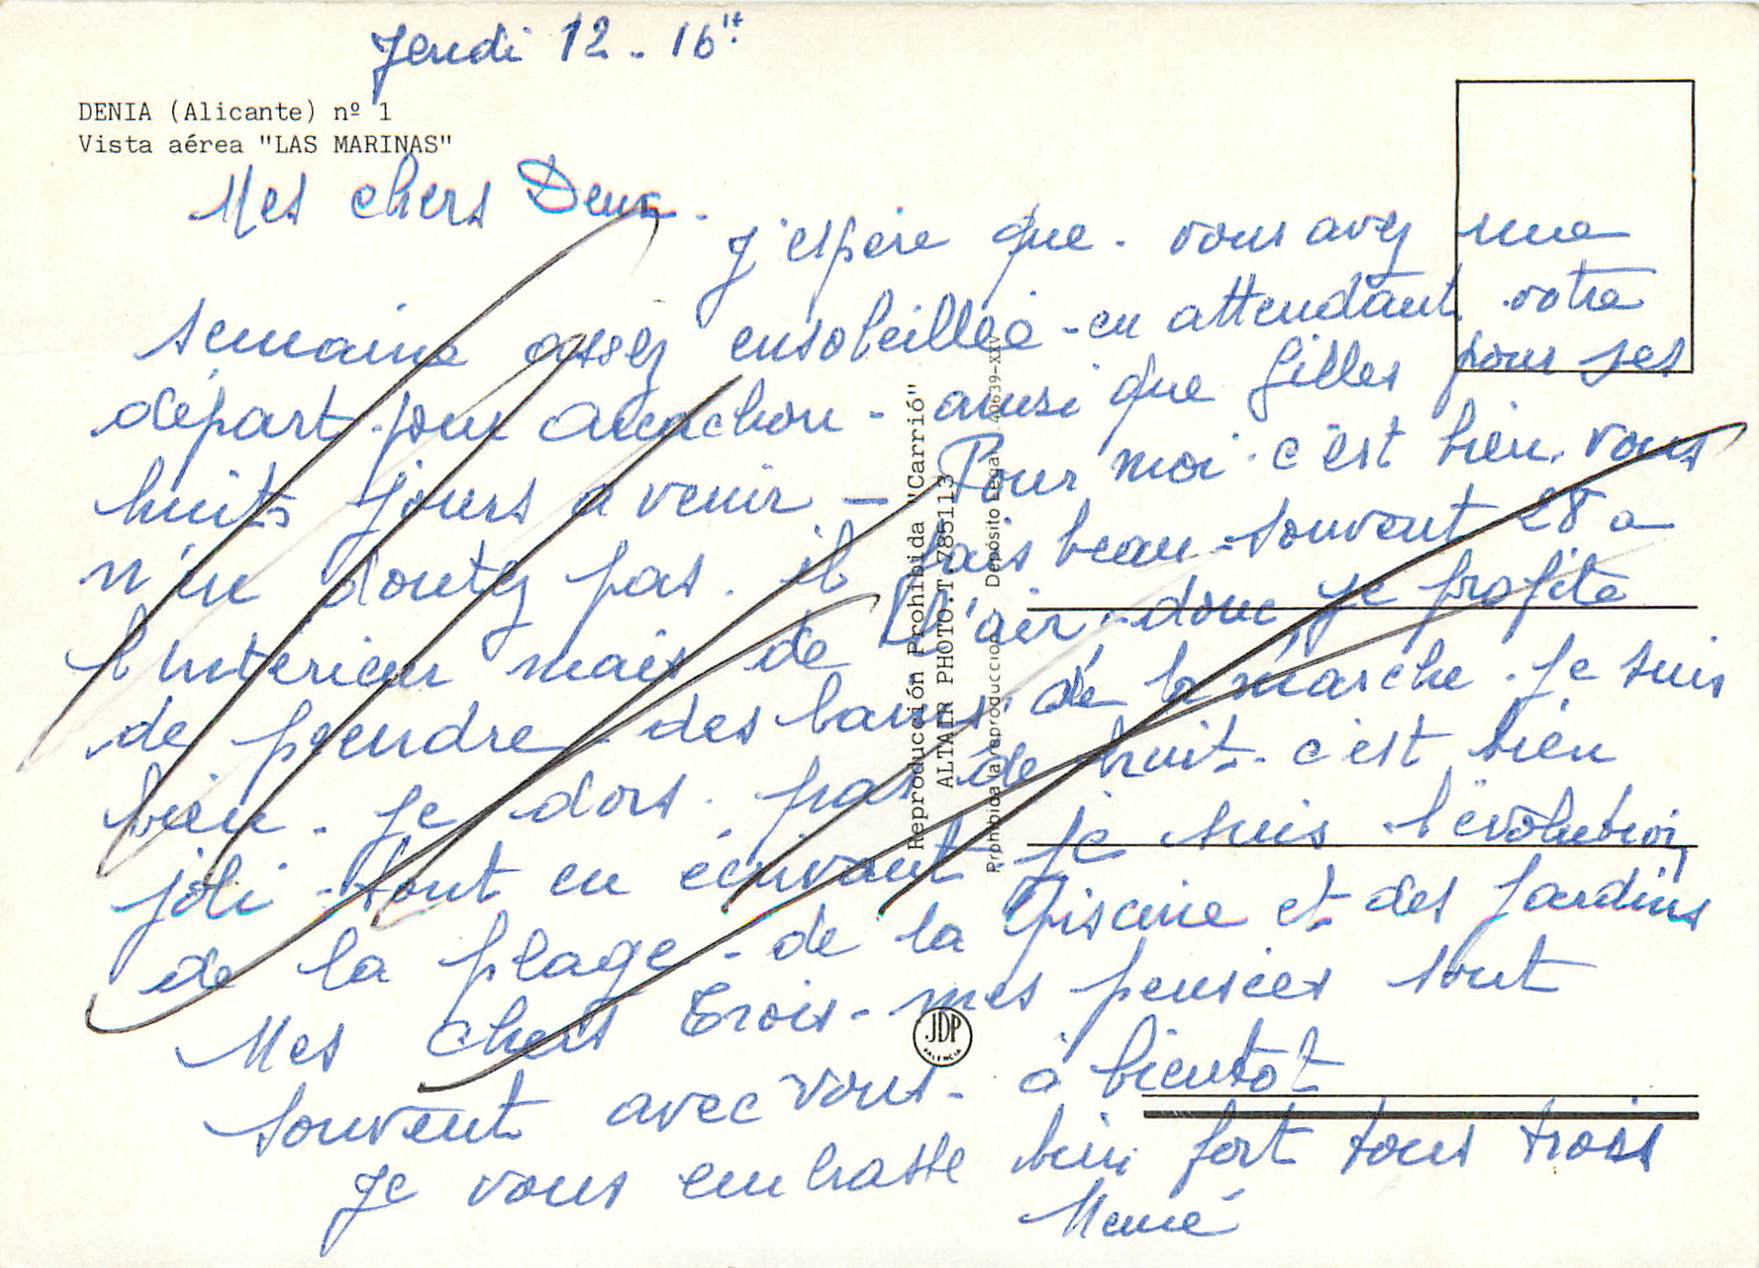 Jeudi 12 - 16H.
DENIA (Alicante) nº 1
Vista aérea "LAS MARINAS"
Mes chers Deux.
J'espère que. vous avez une
semaine assez ensoleillée - en attendant votre
départ pour Arcachon - ainsi que Gilles pour ses
huits jours a venir - Pour moi c'est bien. vous
n'en doutez pas. il fais beau - souvent 28 a
l'intérieur mais de l'air - donc je profite
de prendre des bains. de la marche. Je suis
bien. je dors. pas de bruit. c'est bien
joli - tout en écrivant je suis l'évolution
de la plage - de la Piscine et des Jardins
Mes chers Trois - mes pensées sont
souvent avec vous - à bientôt
Je vous embrasse bien fort tous trois
Mémé
Reproducción Prohibida "Carrió"
ALTAIR PHOTO.T 785113
Prohibida la reproducción Depósito Legal 40639-XIV
JDP
VALENCIA